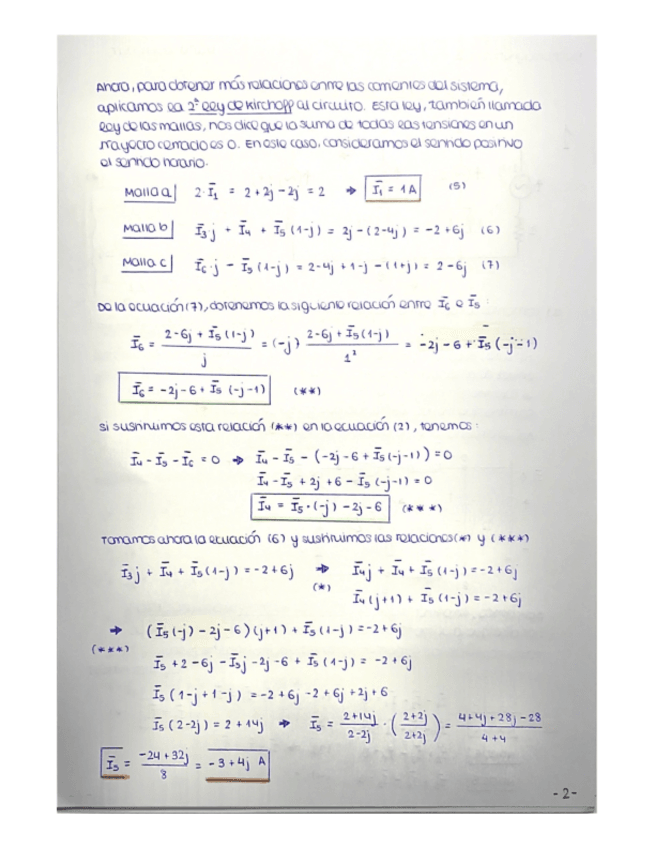 Ahora, para obtener más relaciones entre las corrientes del sistema,
aplicamos la 2ª ley de Kirchoff al circuito. Esta ley, también llamada
ley de las mallas, nos dice que la suma de todas las tensiones en un
trayecto cerrado es 0. En este caso, consideramos el sentido positivo
el sentido horario.
Malla a 2·Ī₁ = 2+2j-2j = 2 → Ī₁ = 1A (5)
Malla b Ī₃j + Ī₄ + Ī₅(1-j) = 2j-(2-4j) = -2+6j (6)
Malla c Ī₆·j - Ī₅(1-j) = 2-4j+1-j-(1+j) = 2-6j (7)
De la ecuación (7), obtenemos la siguiente relación entre Ī₆ e Ī₅:
Ī₆ = (2-6j+Ī₅(1-j))/j = (-j) (2-6j+Ī₅(1-j))/1² = -2j-6+Ī₅(-j-1)
Ī₆ = -2j-6+Ī₅(-j-1) (**)
Si sustituimos esta relación (**) en la ecuación (2), tenemos:
Ī₄-Ī₅-Ī₆=0 → Ī₄-Ī₅-(-2j-6+Ī₅(-j-1))=0
Ī₄-Ī₅+2j+6-Ī₅(-j-1)=0
Ī₄ = Ī₅·(-j)-2j-6 (***)
Tomamos ahora la ecuación (6) y sustituimos las relaciones (*) y (***)
Ī₃j+Ī₄+Ī₅(1-j)=-2+6j → (*) Ī₄j+Ī₄+Ī₅(1-j)=-2+6j
Ī₄(j+1)+Ī₅(1-j)=-2+6j
→ (***) (Ī₅(-j)-2j-6)(j+1)+Ī₅(1-j)=-2+6j
Ī₅+2-6j-Ī₅j-2j-6+Ī₅(1-j)=-2+6j
Ī₅(1-j+1-j)=-2+6j-2+6j+2j+6
Ī₅(2-2j)=2+14j → Ī₅ = (2+14j)/(2-2j)·((2+2j)/(2+2j)) = (4+4j+28j-28)/(4+4)
Ī₅ = (-24+32j)/8 = -3+4j A
-2-